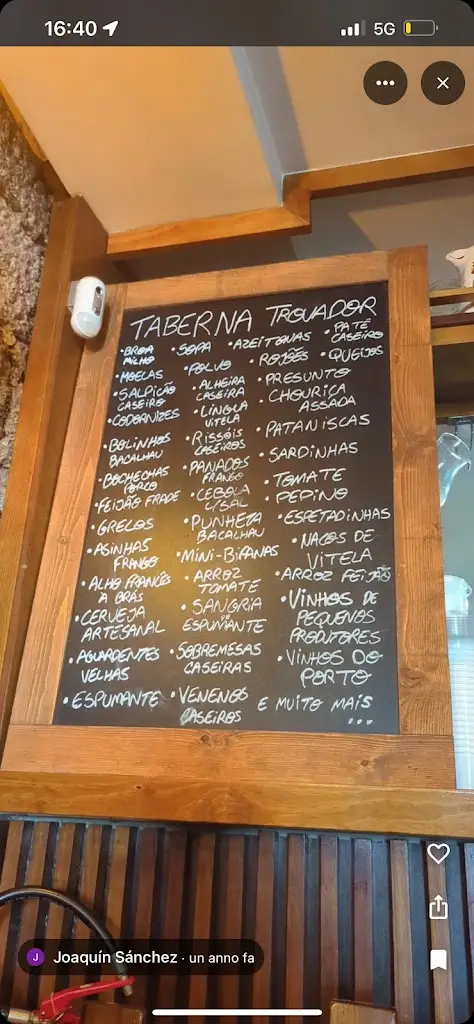 16:40
5G
TABERNA TROVADOR
• BROA
MILHO
• MOELAS
• SALPICÃO
CASEIRO
• CODORNIZES
• BOLINHOS
BACALHAU
• BOCHECHAS
PORCO
• FEIJÃO FRADE
• GRELOS
• ASINHAS
FRANGO
• ALHO FRANCÊS
A BRÁS
• CERVEJA
ARTESANAL
• AGUARDENTES
VELHAS
• ESPUMANTE
• SOPA
• POLVO
• ALHEIRA
CASEIRA
• LÍNGUA
VITELA
• RISSÓIS
CASEIROS
• PANADOS
FRANGO
• CEBOLA
C/SAL
• PUNHETA
BACALHAU
• MINI-BIFANAS
• ARROZ
TOMATE
• SANGRIA
DE
ESPUMANTE
• SOBREMESAS
CASEIRAS
• VENENOS
CASEIROS
• AZEITONAS
• ROJÕES
• PRESUNTO
• CHOURIÇA
ASSADA
• PATANISCAS
• SARDINHAS
• TOMATE
• PEPINO
• ESPETADINHAS
• NACOS DE
VITELA
• ARROZ FEIJÃO
• VINHOS DE
PEQUENOS
PRODUTORES
• VINHOS DO
PORTO
• PATÊ
CASEIRO
• QUEIJOS
E MUITO MAIS
...
J
Joaquín Sánchez · un anno fa